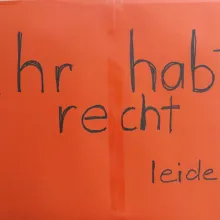 hr hab
recht
leide